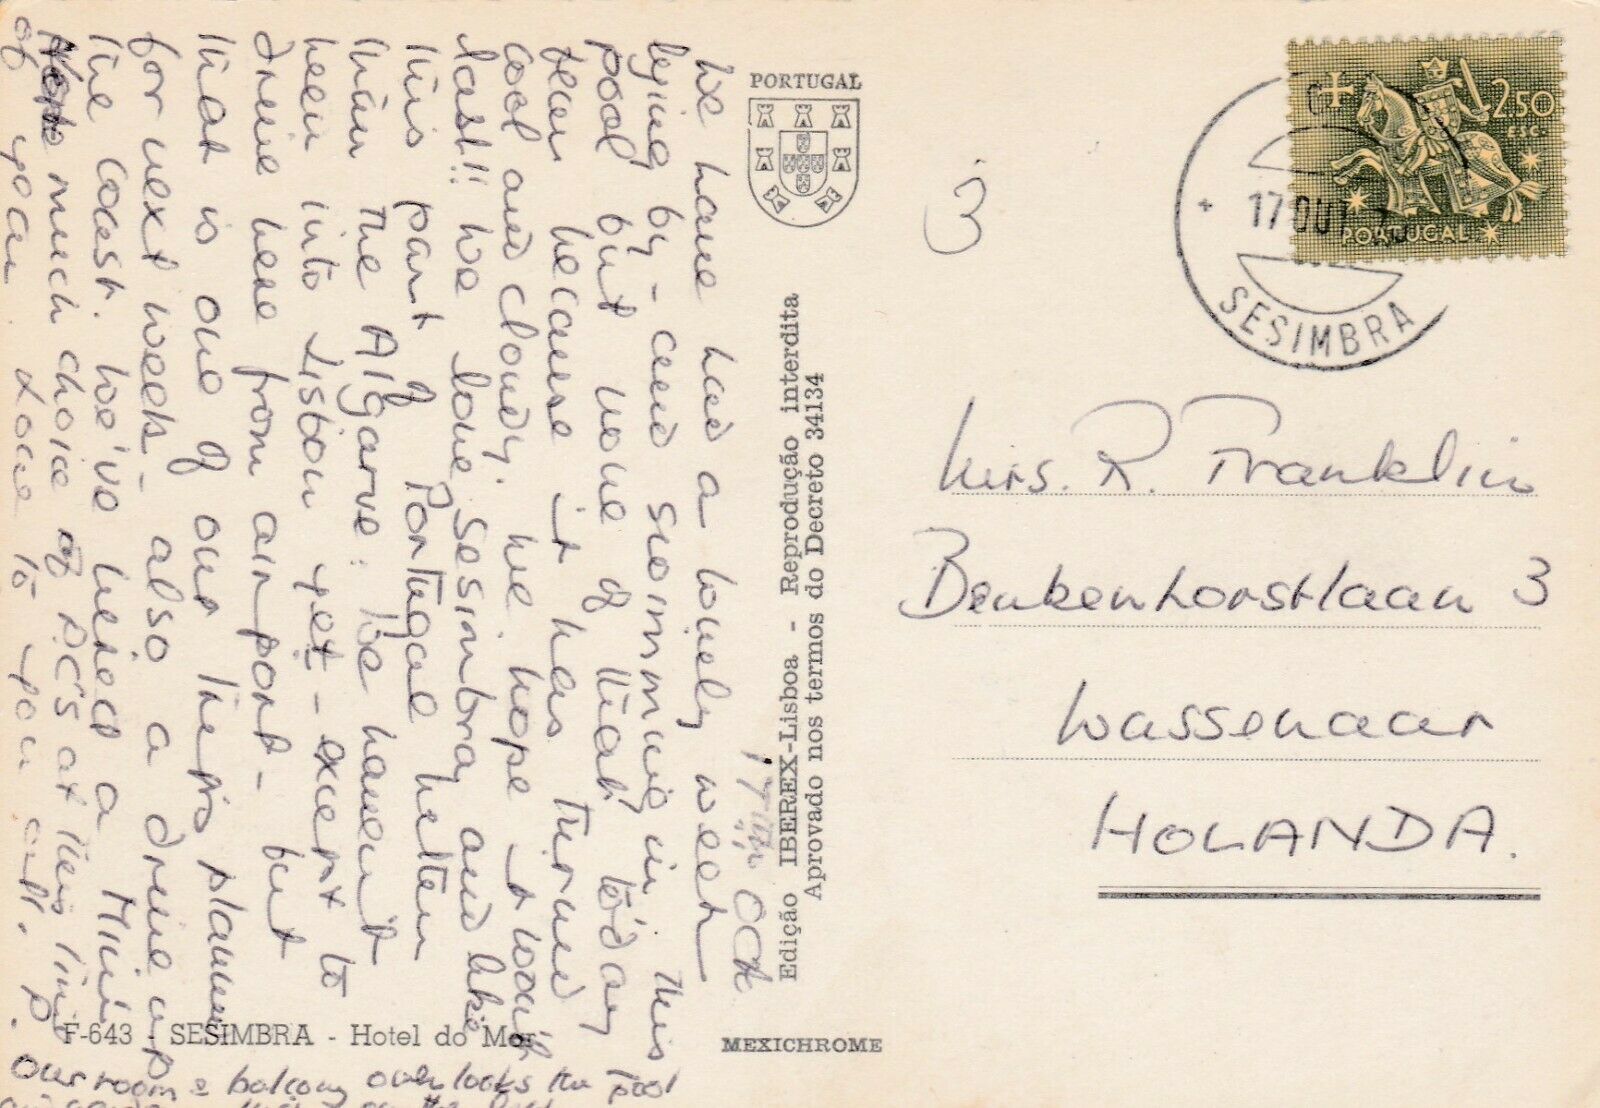 17th Oct
We have had a lovely week
lying by - and swimming in, this
pool but none of that to'day
because it has turned
cool and cloudy. We hope it won't
last!! We love Sesimbra and like
this part of Portugal better
than the Algarve. We haven't
been into Lisbon yet - except to
drive here from airport - but
that is one of our trips planned
for next week - also a drive up
the coast. We've hired a Mini
much choice of P.C's at this time
of year. Love to you all.
. Our room & balcony overlooks the pool
PORTUGAL
Edição IBEREX-Lisboa - Reprodução interdita
Aprovado nos termos do Decreto 34134
F-643 - SESIMBRA - Hotel do Mar
MEXICHROME
3
17 OUT
SESIMBRA
2$50
CTC.
PORTUGAL
Mrs. R. Franklin
Beukenhorstlaan 3
Wassenaar
HOLANDA.